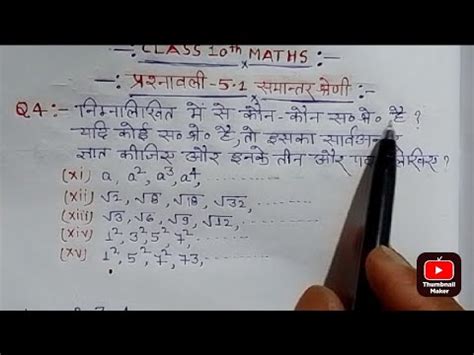 CLASS 10th MATHS :-
प्रश्नावली - 5.1 समान्तर श्रेणी
Q4:- निम्नलिखित में से कौन-कौन स० श्रे० हैं ?
यदि कोई स० श्रे० है, तो इसका सार्वअन्तर
ज्ञात कीजिए और इनके तीन और पद लिखिए ?
(xi) a, a², a³, a⁴, ........
(xii) √2, √8, √18, √32, ........
(xiii) √3, √6, √9, √12, ........
(xiv) 1², 3², 5², 7², ........
(xv) 1², 5², 7², 73, ........
Thumbnail
Maker